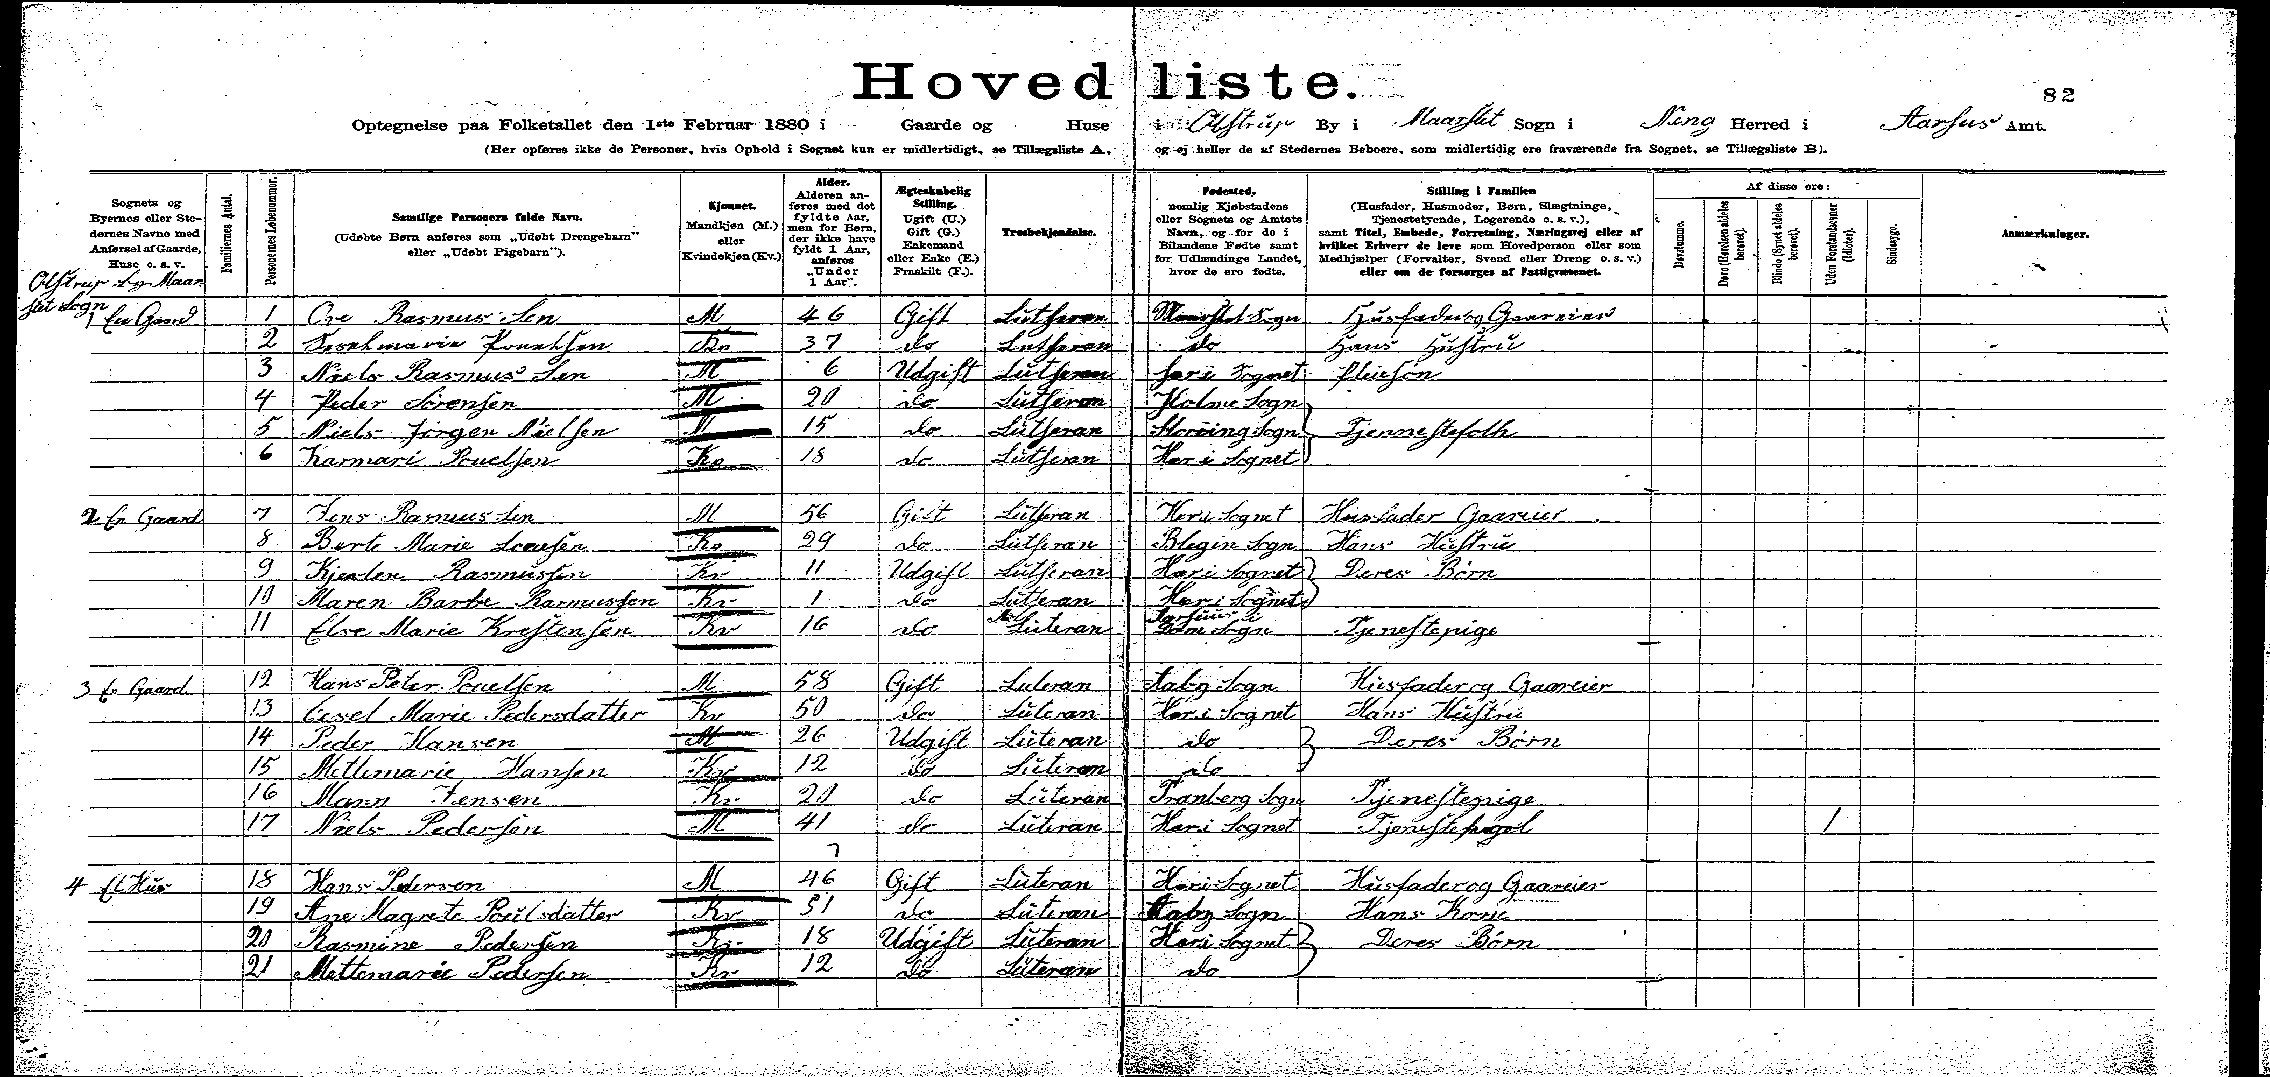 Hovedliste.
82
Optegnelse paa Folketallet den 1ste Februar 1880 i Gaarde og Huse i Olstrup By i Maarslet Sogn i Ning Herred i Aarhus Amt.
(Her opføres ikke de Personer, hvis Ophold i Sognet kun er midlertidigt, se Tillægsliste A, og ej heller de af Stedernes Beboere, som midlertidig ere fraværende fra Sognet, se Tillægsliste B).
Sognets og Byernes eller Stedernes Navne med Anførsel af Gaarde, Huse o. s. v.
Familiernes Antal.
Personernes Løbenummer.
Samtlige Personers fulde Navn. (Udøbte Børn anføres som „Udøbt Drengebarn" eller „Udøbt Pigebarn").
Kjønnet. Mandkjøn (M.) eller Kvindekjøn (Kv.)
Alder. Alderen anføres med det fyldte Aar, men for Børn, der ikke have fyldt 1 Aar, anføres „Under 1 Aar".
Ægteskabelig Stilling. Ugift (U.) Gift (G.) Enkemand eller Enke (E.) Fraskilt (F.).
Trosbekjendelse.
Fødested, nemlig Kjøbstadens eller Sognets og Amtets Navn, og for de i Bilandene Fødte samt for Udlændinge Landet, hvor de ere fødte.
Stilling i Familien (Husfader, Husmoder, Børn, Slægtninge, Tjenestetyende, Logerende o. s. v.), samt Titel, Embede, Forretning, Næringsvej eller af hvilket Erhverv de leve som Hovedperson eller som Medhjælper (Forvalter, Svend eller Dreng o. s. v.) eller om de forsørges af Fattigvæsenet.
Af disse ere:
Døvstumme.
Døve (Hørelsen aldeles berøvet).
Blinde (Synet aldeles berøvet).
Uden Forstandsevner (Idioter).
Sindssyge.
Anmærkninger.
Olstrup By Maarslet Sogn
1 En Gaard 1 Ove Rasmussen M 46 Gift Lutheran Maarslet Sogn Husfader og Gaareier
2 Kv 37 do Lutheran do Hans Hustru
3 Niels Rasmussen M 6 Udgift Lutheran her i Sognet Pleiesøn
4 Peder Sörensen M 20 do Lutheran Holme Sogn
5 Niels Jörgen Nielsen M 15 do Lutheran Sogn Tjennestefolk
6 Karmari Pouelsen Kv 18 do Lutheran Her i Sognet
2 En Gaard 7 Jens Rasmussen M 56 Gift Lutheran Her i Sognet Husfader Gaareier
8 Berte Marie Kv 29 do Lutheran Blegin Sogn Hans Hustru
9 Rasmussen Kv 11 Udgift Lutheran Her i Sognet Deres Børn
10 Maren Barbe Rasmussen Kv 1 do Lutheran Her i Sognet
11 Else Marie Krestensen Kv 16 do Luteran Aarhuus Dom Sogn Tjenestepige
3 En Gaard 12 Hans Peter Pouelsen M 58 Gift Luteran Aaby Sogn Husfader og Gaareier
13 Marie Pedersdatter Kv 50 do Luteran Her i Sognet Hans Hustru
14 Peder Hansen M 26 Udgift Luteran do Deres Børn
15 Mettemarie Hansen Kv 12 do Luteran do
16 Jensen Kv 20 do Luteran Tranberg Sogn Tjenestepige
17 Niels Pedersen M 41 do Luteran Her i Sognet 1
7
4 Et Hus 18 Hans Pederson M 46 Gift Luteran Her i Sognet Husfader og Gaareier
19 Ane Magrete Poulsdatter Kv 51 do Luteran Aaby Sogn Hans Kone
20 Rasmine Pedersen Kv 18 Udgift Luteran Her i Sognet Deres Børn
21 Mettemarie Pedersen Kv 12 do Luteran do